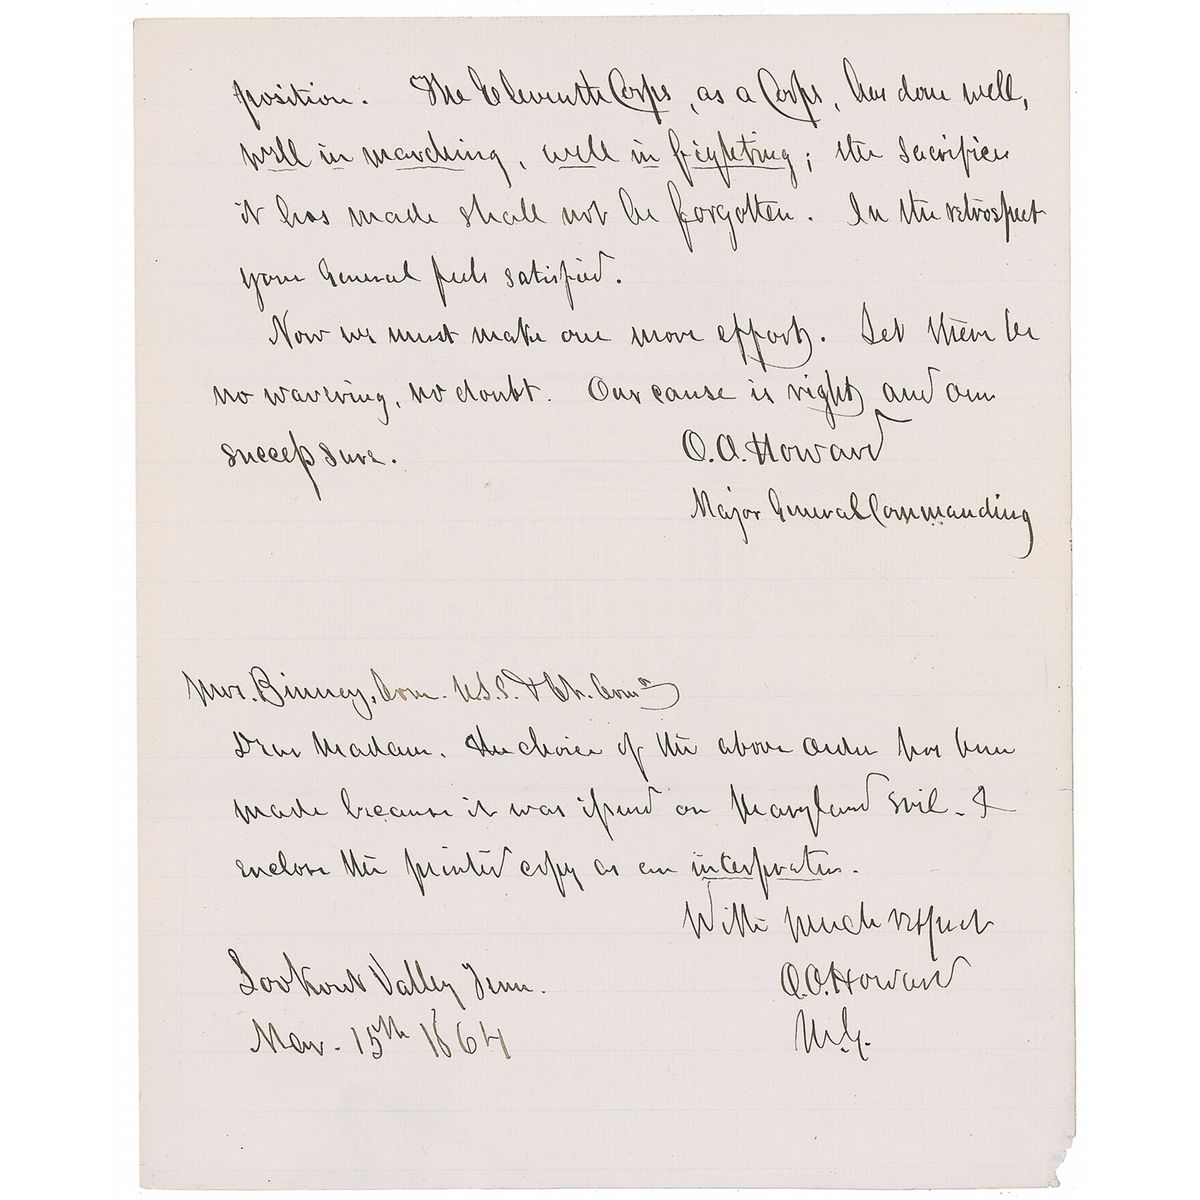 position. The Eleventh Corps, as a Corps, has done well,
well in marching, well in fighting; the sacrifices
it has made shall not be forgotten. In the retrospect
your General feels satisfied.
Now we must make one more effort. Let there be
no wavering, no doubt. Our cause is right and our
success sure. O.O. Howard
Major General Commanding
Mrs. Binney, Com. U.S.S. & Ch. Com.
Dear Madam. The choice of the above order has been
made because it was issued on Maryland soil. I
enclose the printed copy as an interpreter.
With much respect
Lookout Valley Tenn. O.O. Howard
Mar. 15th 1864 M.G.